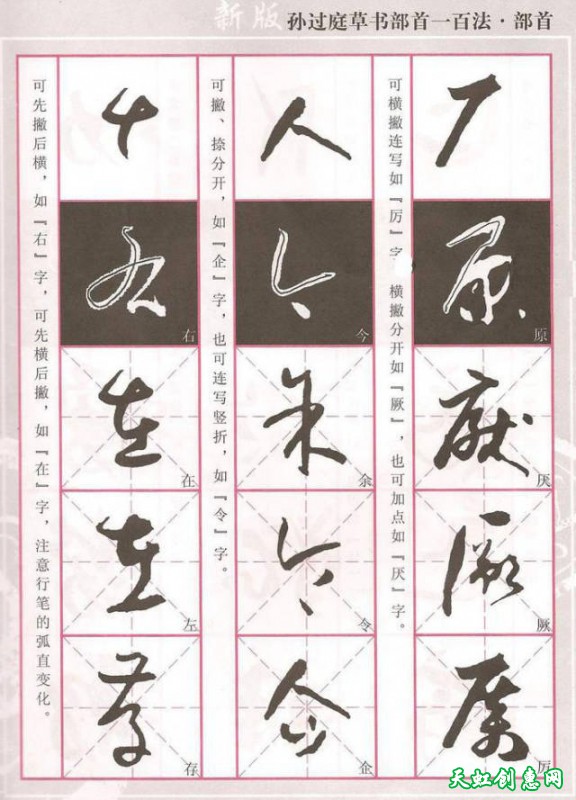 新版 孙过庭草书部首一百法·部首
可横撇连写如『厉』字 横撇分开如『厥』，也可加点如『厌』字。
原
厌
厥
厉
可撇、捺分开，如『企』字，也可连写竖折，如『令』字。
今
余
令
企
可先撇后横，如『右』字，可先横后撇，如『在』字，注意行笔的弧直变化。
右
在
左
存
天虹创惠网